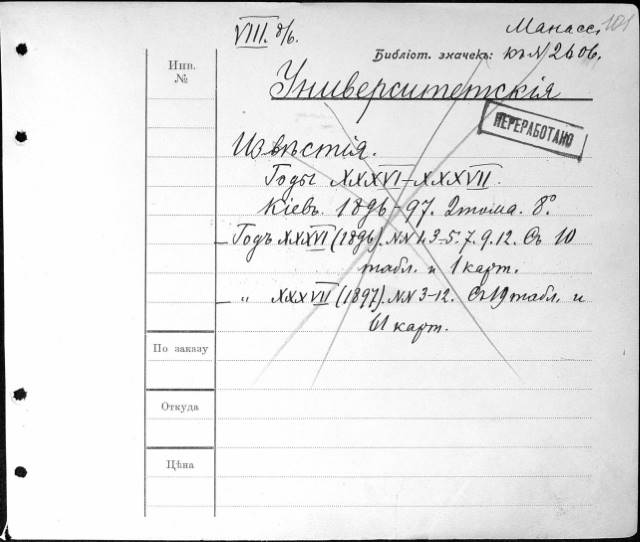 VIII. б/б.
Манасс. 101
Библіот. значекъ: къ № 2606.
Инв.
№
Университетскія
ПЕРЕРАБОТАНО
Извѣстія.
Годы XXXVI–XXXVII.
Кіевъ. 1896–97. 2 тома. 8°.
– Годъ XXXVI (1896). №№ 1.3–5.7.9.12. Съ 10
табл. и 1 карт.
– „ XXXVII (1897). №№ 3–12. Съ 19 табл. и
61 карт.
По заказу
Откуда
Цѣна